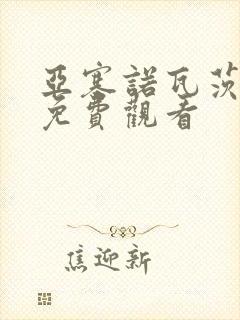 亞塞諾瓦茨
免費觀看
焦迎新